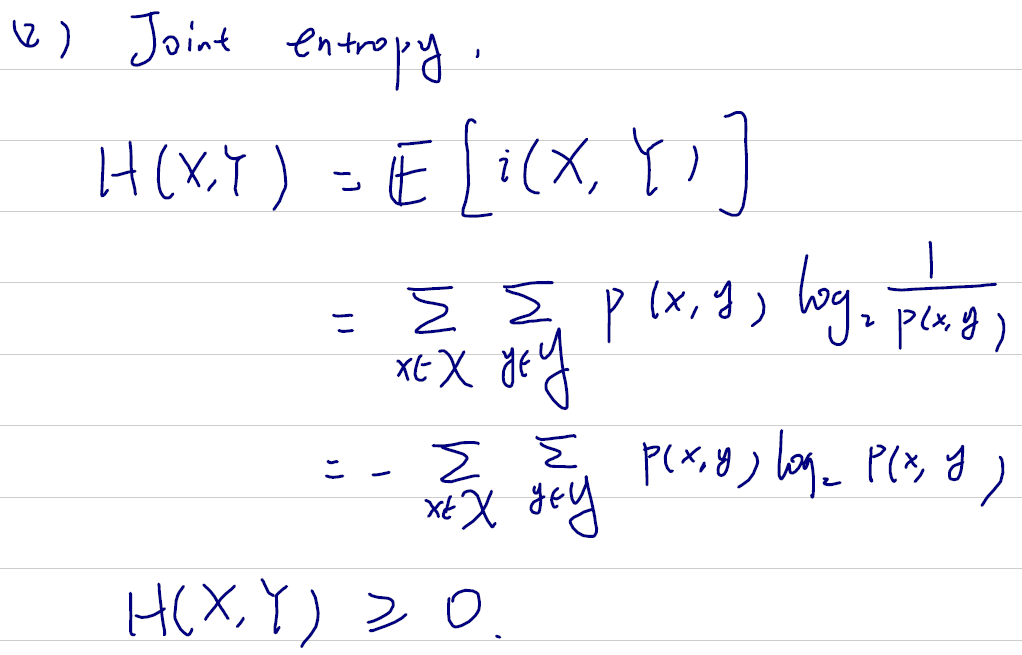 (2) Joint entropy.
H(X,Y) = 𝔼[i(X,Y)]
= ∑_{x∈𝒳} ∑_{y∈𝒴} p(x,y) log₂ 1/p(x,y)
= - ∑_{x∈𝒳} ∑_{y∈𝒴} p(x,y) log₂ p(x,y)
H(X,Y) ≥ 0.